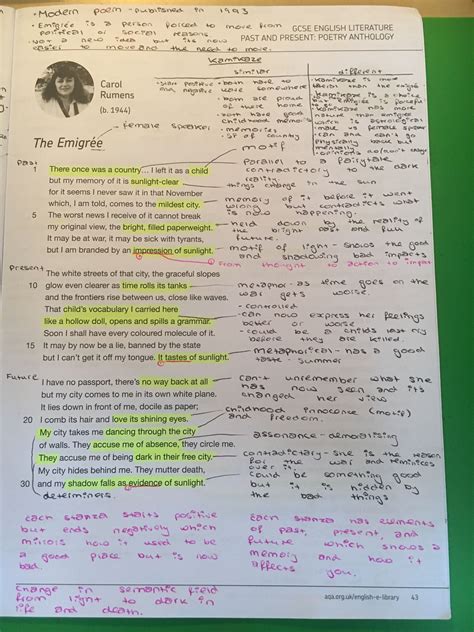 • Modern poem - published in 1993
• Emigrée is a person forced to move from
political or social reasons
• Not a new idea but its now
easier to move and the need to move.
GCSE ENGLISH LITERATURE
PAST AND PRESENT: POETRY ANTHOLOGY
Kamikaze
similar
different
Carol
Rumens
(b. 1944)
female speaker
• start positive
end negative
• both have to
leave somewhere
• both are proud
of there home
• both have good
childhood memories
• memories
• of country
• Kamikaze is more
• male vs female speaker
• can and can't go
physically back but
mentally
The Emigrée
motif
Past
1 There once was a country… I left it as a child
but my memory of it is sunlight-clear
for it seems I never saw it in that November
which, I am told, comes to the mildest city.
5 The worst news I receive of it cannot break
my original view, the bright, filled paperweight.
It may be at war, it may be sick with tyrants,
but I am branded by an impression of sunlight.
parallel to fairytale
contradictory to the dark
reality.
things change in the sun
memory of it before it went
wrong but contradicts what
is now happening.
held down by the reality of
the bright past and full
future.
motif of light - shows the good
and shadowing bad impacts
from thought to action to impact
Present
The white streets of that city, the graceful slopes
10 glow even clearer as time rolls its tanks
and the frontiers rise between us, close like waves.
That child's vocabulary I carried here
like a hollow doll, opens and spills a grammar.
Soon I shall have every coloured molecule of it.
15 It may by now be a lie, banned by the state
but I can't get it off my tongue. It tastes of sunlight.
metaphor - as time goes on the
war gets worse.
• controlled
• can now express her feelings
better or worse
- could be a childs last cry
before they are killed.
metaphorical - has a good
taste - summer
Future
I have no passport, there's no way back at all
but my city comes to me in its own white plane.
It lies down in front of me, docile as paper;
20 I comb its hair and love its shining eyes.
My city takes me dancing through the city
of walls. They accuse me of absence, they circle me.
They accuse me of being dark in their free city.
My city hides behind me. They mutter death,
30 and my shadow falls as evidence of sunlight.
determiners.
can't unremember what she
has now seen and its
changed her view
childhood innocence (motif)
and freedom.
assonance - demoralising
contradictary - she is the reason
for the war and reminices
over it.
could be something good
but it is hidden by
the bad things
Each stanza starts positive
but ends negatively which
mirrors how it used to be
a good place but is now
bad.
Each stanza has elements
of past, present, and
future which shows a
memory and how it
affects you.
Change in semantic field
from light to dark in
life and death.
aqa.org.uk/english-e-library 43